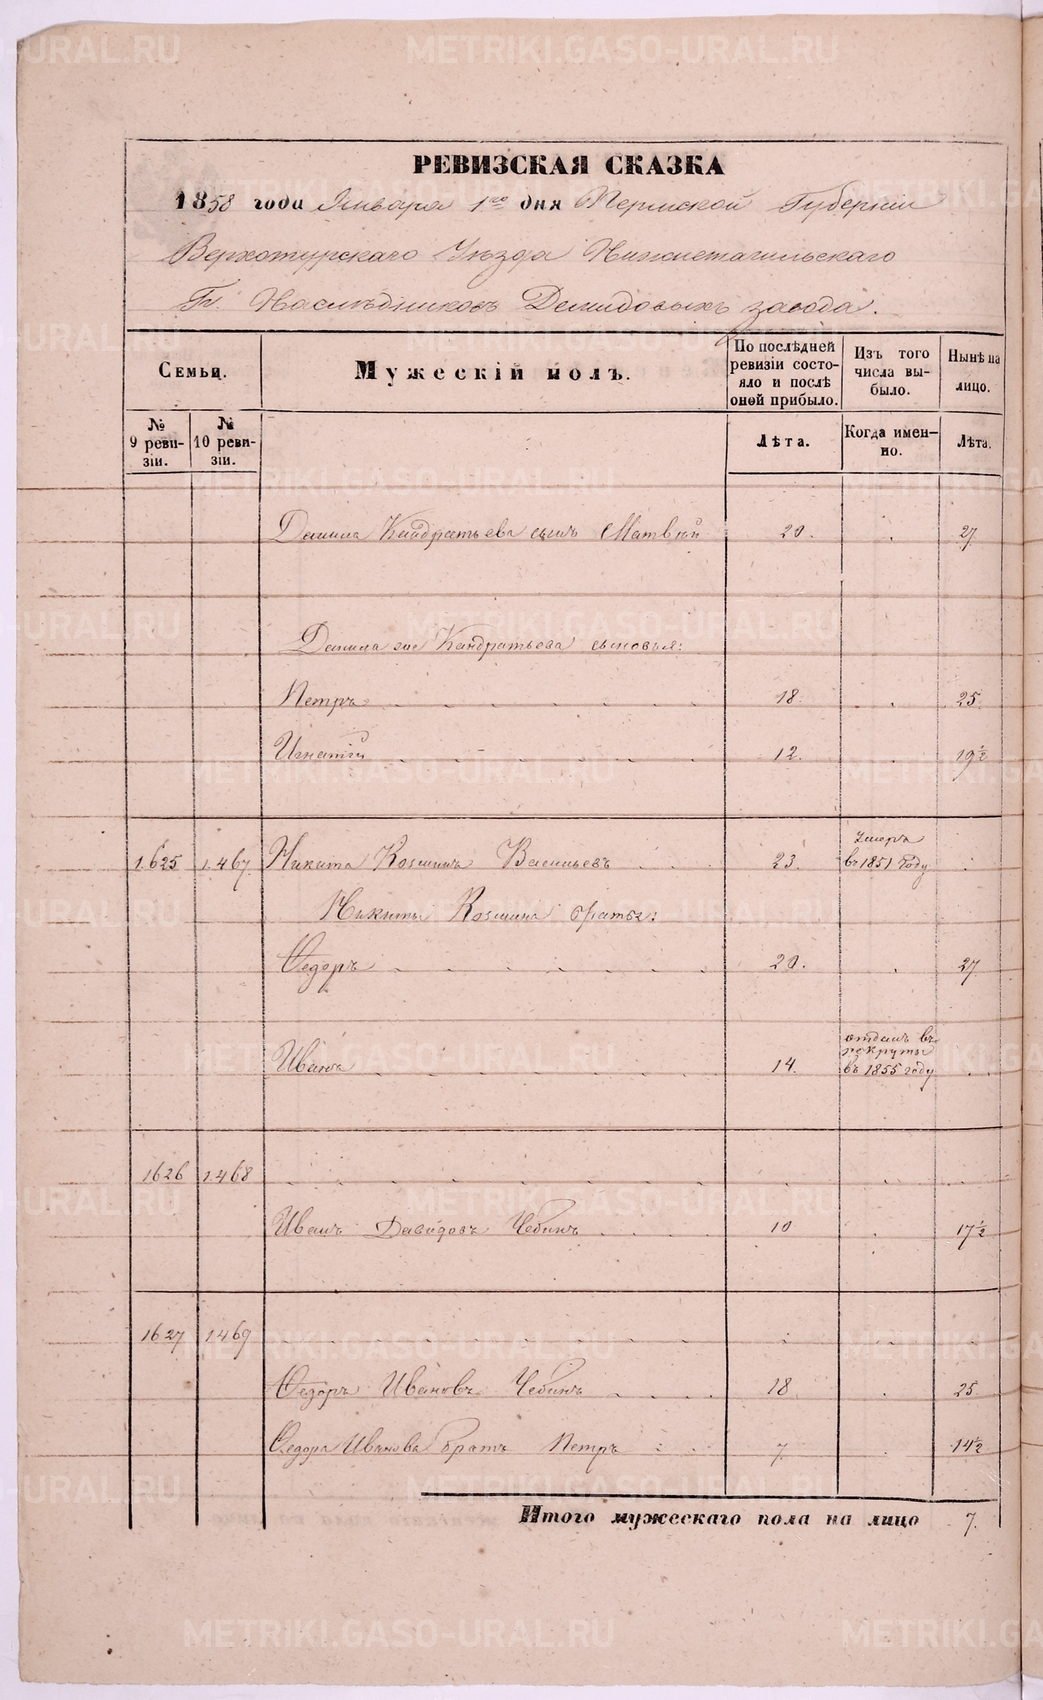 РЕВИЗСКАЯ СКАЗКА
1858 года Января 1го дня Пермской Губернии
Верхотурскаго Уезда Нижнетагильскаго
Гг. Наследниковъ Демидовыхъ завода.
Семьи.
Мужескій полъ.
По послѣдней ревизіи состояло и послѣ оной прибыло.
Изъ того числа выбыло.
Нынѣ на лицо.
№ 9 ревизіи.
№ 10 ревизіи.
Лѣта.
Когда именно.
Лѣта.
Данила Кандратьева сынъ Матвѣй 20. 27
Данила же Кандратьева сыновья:
Петръ 18. 25.
Игнатій 12. 19½
1625 1467 Никита Козминъ Васильевъ 23. Умеръ въ 1851 году
Никиты Козмина братья:
Федоръ 20. 27
Иванъ 14. отданъ въ рекруты въ 1855 году
1626 1468
Иванъ Давидовъ Чебинъ 10 17½
1627 1469
Федоръ Ивановъ Чебинъ 18 25
Федора Иванова братъ Петръ 7. 14½
Итого мужескаго пола на лицо 7.
METRIKI.GASO-URAL.RU